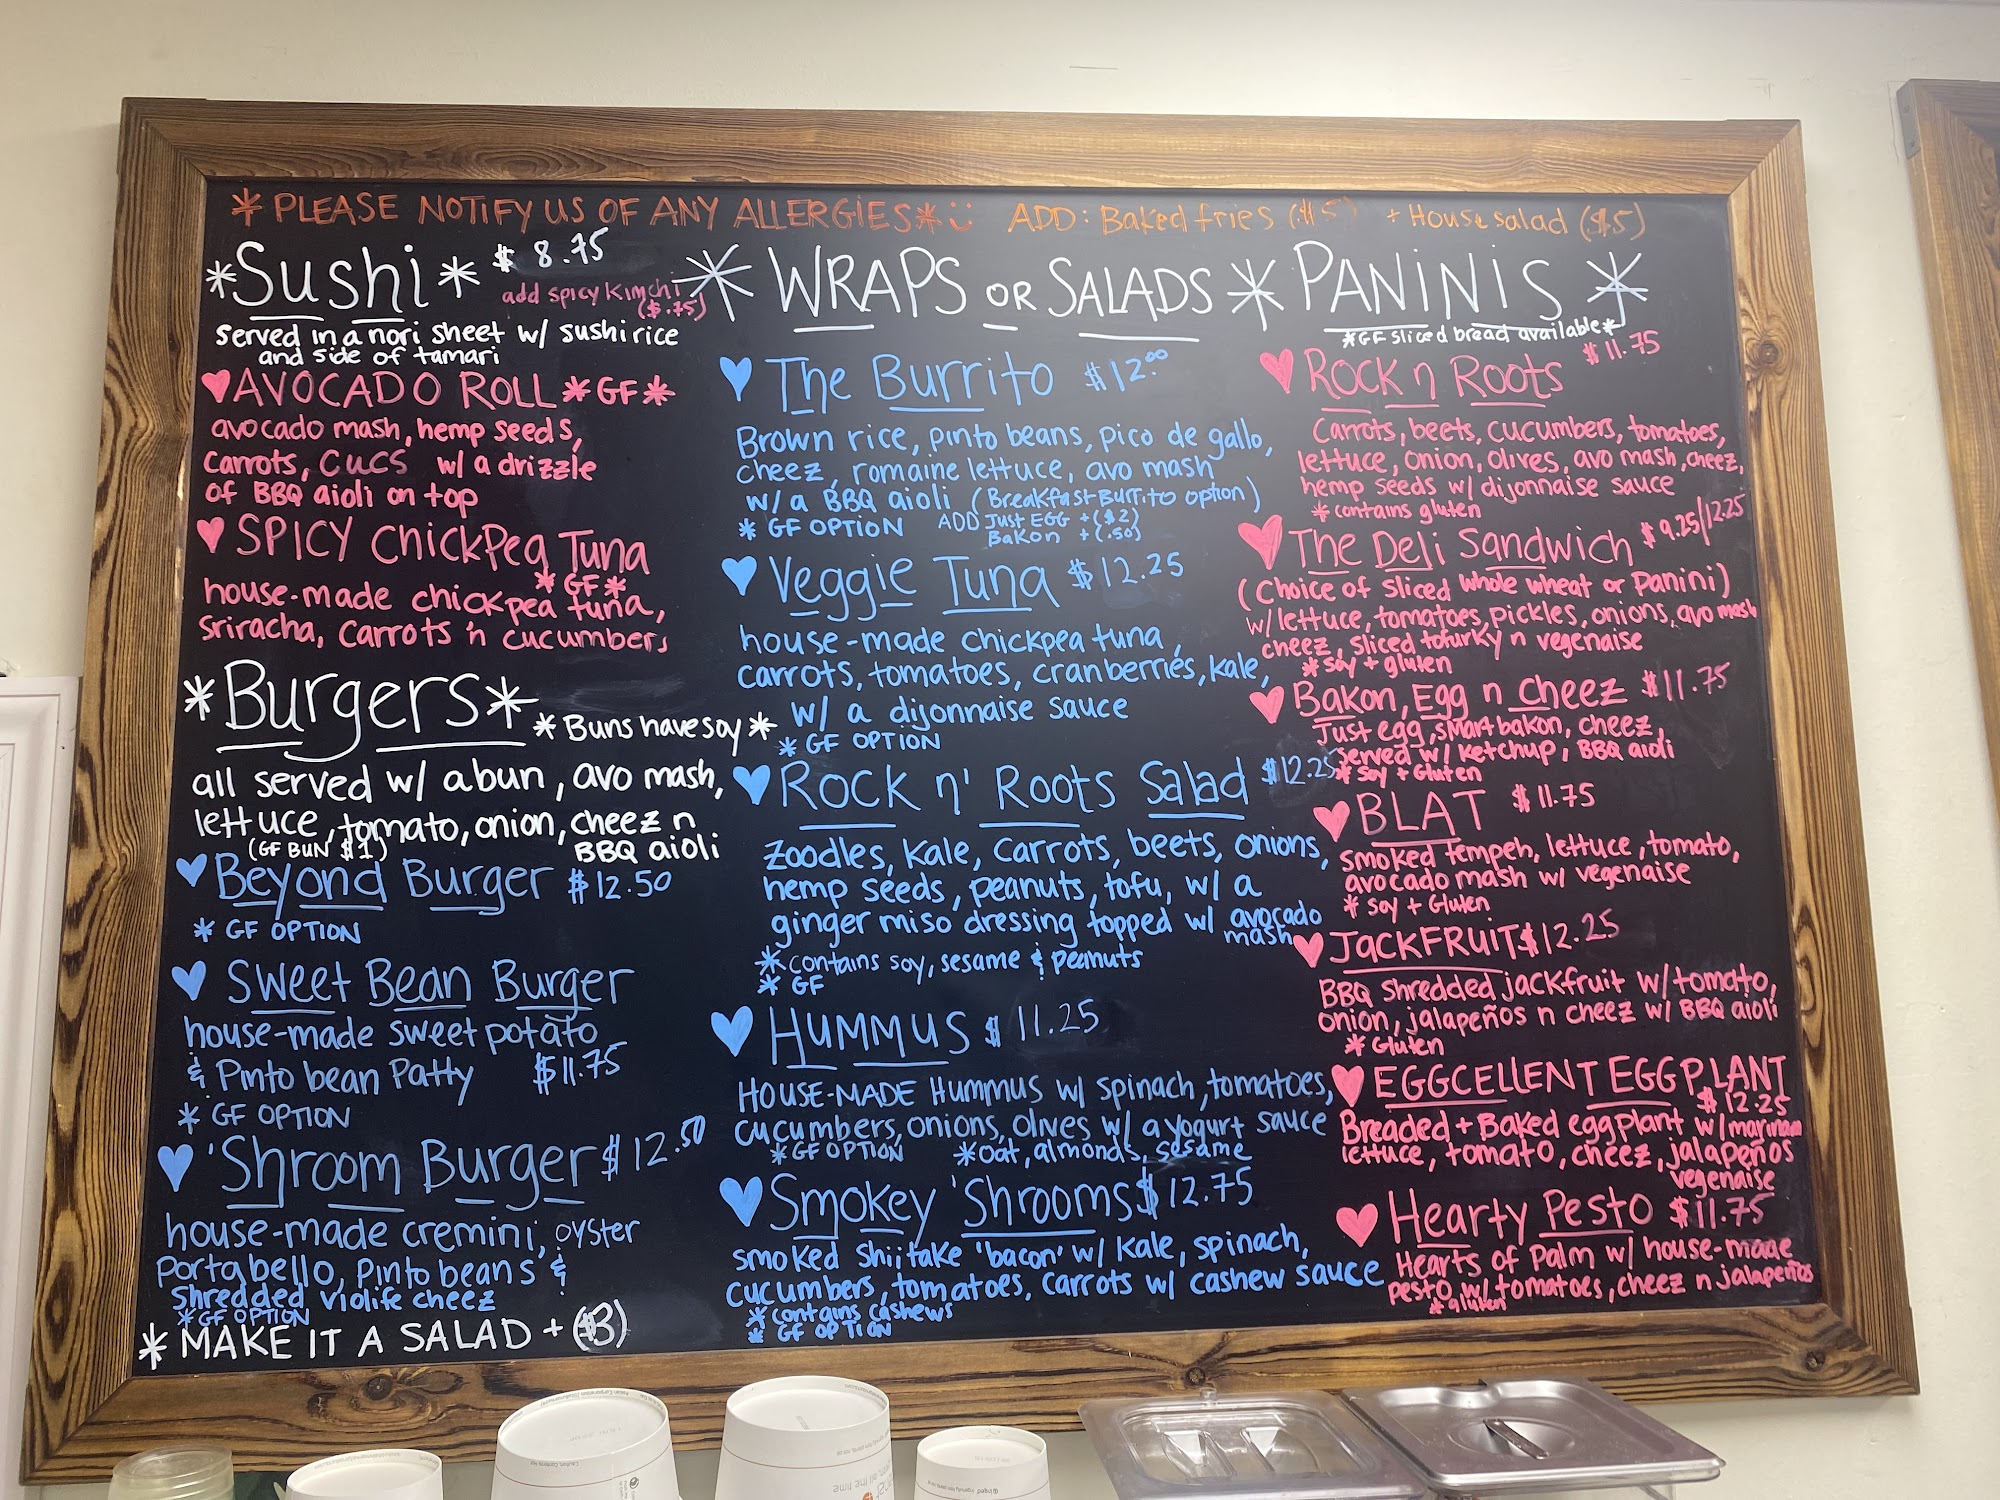 *PLEASE NOTIFY US OF ANY ALLERGIES* ADD: Baked fries ($5) + House salad ($5)
*Sushi* $ 8.75
add spicy Kimchi
($.75)
served in a nori sheet w/ sushi rice
and side of tamari
AVOCADO ROLL *GF*
avocado mash, hemp seeds,
carrots, cucs w/ a drizzle
of BBQ aioli on top
SPICY Chickpea Tuna
*GF*
house-made chickpea tuna,
sriracha, carrots 'n cucumbers
*Burgers*
*Buns have soy*
all served w/ a bun, avo mash,
lettuce, tomato, onion, cheez n
(GF BUN $1) BBQ aioli
Beyond Burger $12.50
* GF OPTION
Sweet Bean Burger
house-made sweet potato
& Pinto bean Patty $11.75
* GF OPTION
'Shroom Burger $12.50
house-made cremini, oyster
Portabello, pinto beans &
shredded violife cheez
*GF OPTION
* MAKE IT A SALAD + ($3)
* WRAPS OR SALADS *
The Burrito $12.00
Brown rice, pinto beans, pico de gallo,
cheez, romaine lettuce, avo mash
w/ a BBQ aioli (Breakfast Burrito option)
* GF OPTION ADD Just EGG + ($2)
Bakon + (.50)
Veggie Tuna $12.25
house-made chickpea tuna,
carrots, tomatoes, cranberries, kale,
w/ a dijonnaise sauce
* GF OPTION
Rock n' Roots Salad $12.25
zoodles, kale, carrots, beets, onions,
hemp seeds, peanuts, tofu, w/ a
ginger miso dressing topped w/ avocado
mash
* contains soy, sesame & peanuts
* GF
HUMMUS $ 11.25
HOUSE-MADE HUMMUS w/ spinach, tomatoes,
cucumbers, onions, olives w/ a yogurt sauce
*GF OPTION *oat, almonds, sesame
Smokey 'Shrooms $12.75
smoked shiitake 'bacon' w/ kale, spinach,
cucumbers, tomatoes, carrots w/ cashew sauce
* contains cashews
* GF OPTION
PANINIS *
*GF sliced bread available*
Rock n Roots $11.75
Carrots, beets, cucumbers, tomatoes,
lettuce, onion, olives, avo mash, cheez,
hemp seeds w/ dijonnaise sauce
* contains gluten
The Deli Sandwich $9.25/12.25
(Choice of sliced whole wheat or panini)
w/ lettuce, tomatoes, pickles, onions, avo mash
cheez, sliced tofurky n vegenaise
* soy + gluten
Bakon, Egg n cheez $11.75
Just egg, smart bakon, cheez,
served w/ ketchup, BBQ aioli
* soy + Gluten
BLAT $11.75
smoked tempeh, lettuce, tomato,
avocado mash w/ vegenaise
* soy + Gluten
JACKFRUIT $12.25
BBQ shredded jackfruit w/ tomato,
onion, jalapeños n cheez w/ BBQ aioli
* Gluten
EGGCELLENT EGGPLANT
$12.25
Breaded + Baked eggplant w/ marinara
lettuce, tomato, cheez, jalapeños
vegenaise
Hearty Pesto $11.75
Hearts of Palm w/ house-made
pesto w/ tomatoes, cheez n jalapeños
* gluten